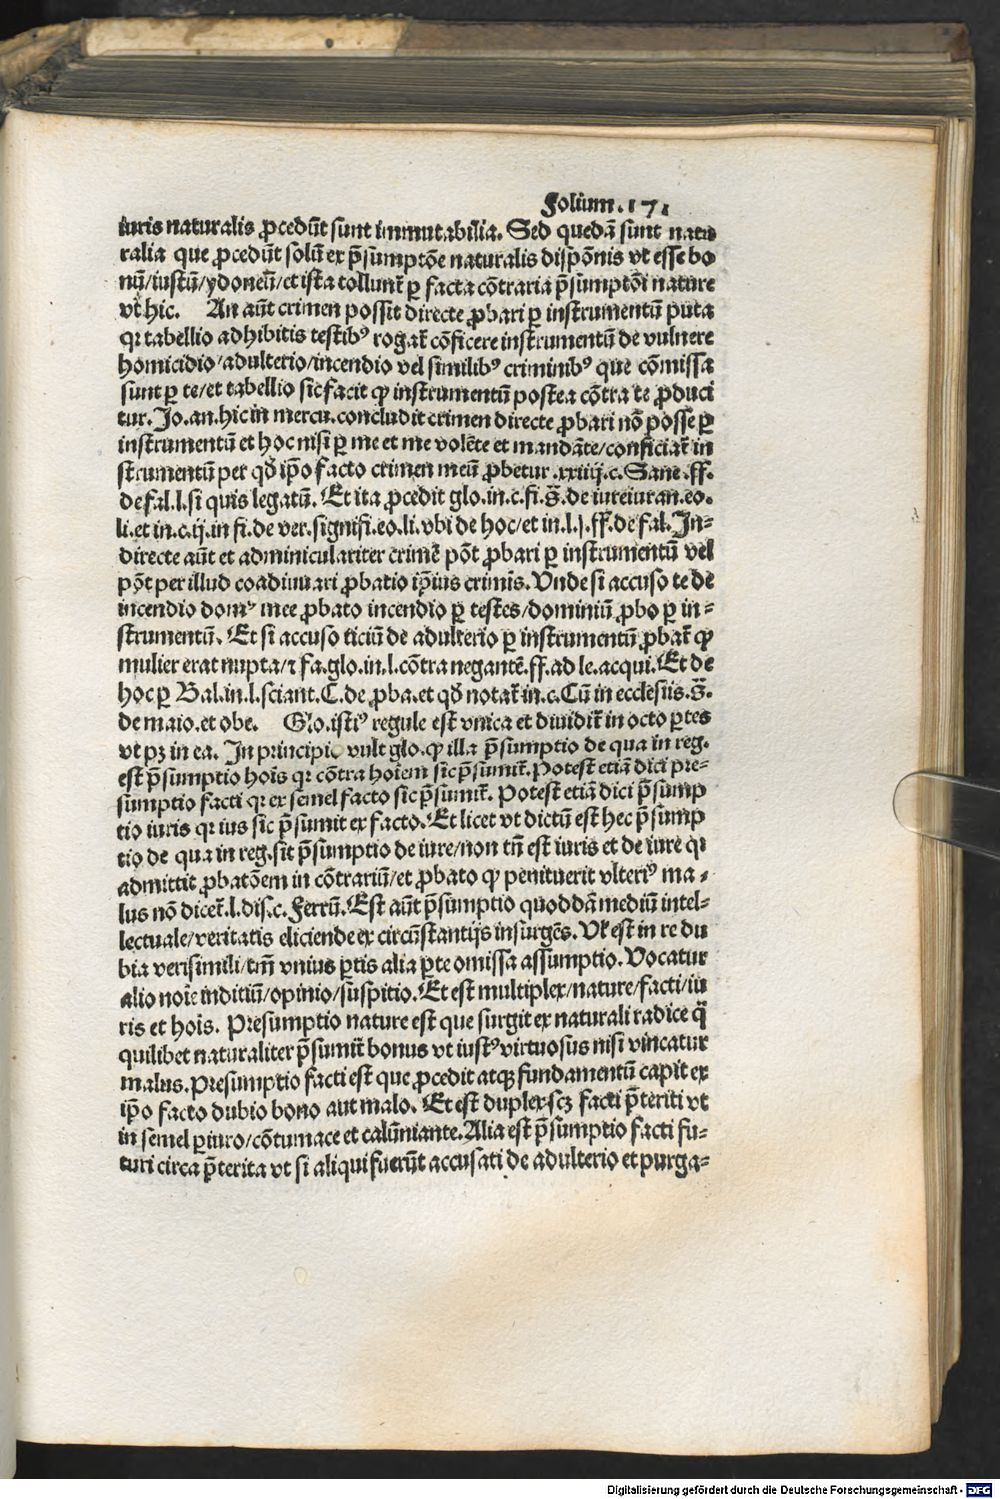 Folium.171
iuris naturalis ꝓcedūt sunt immutabilia. Sed quedā sunt natu
ralia que ꝓcedūt solū ex p̄sumptōe naturalis dispōnis vt esse bo
nū/iustū/ydoneū/et ista tollunt̄ ꝑ facta cōtraria p̄sumptōi nature
vt hic. An aūt crimen possit directe ꝓbari ꝑ instrumentū puta
qꝛ tabellio adhibitis testibꝰ rogat̄ cōficere instrumentū de vulnere
homicidio/adulterio/incendio vel similibꝰ criminibꝰ que cōmissa
sunt ꝑ te/et tabellio sic facit ꝙ instrumentū postea cōtra te ꝓduci
tur. Jo.an.hic in mercu.concludit crimen directe ꝓbari nō posse ꝑ
instrumentū et hoc nisi ꝑ me et me volēte et mandāte/conficiat̄ in
strumentū per qđ ip̄o facto crimen meū ꝓbetur .xxiiij.c. Sane .ff.
de fal.l.si quis legatū. Et ita ꝓcedit glo.in.c.fi.s̄.de iureiuran.eo.
li.et in.c.ij.in fi.de ver.signifi.eo.li.vbi de hoc/et in.l.j.ff.de fal. In⸗
directe aūt et adminiculariter crimē pōt ꝓbari ꝑ instrumentū vel
pōt per illud coadiuuari ꝓbatio ip̄ius crimīs. Vnde si accuso te de
incendio domꝰ mee ꝓbato incendio ꝑ testes/dominiū ꝓbo ꝑ in⸗
strumentū. Et si accuso ticiū de adulterio ꝑ instrumentū ꝓbat̄ ꝙ
mulier erat nupta/⁊ fa.glo.in.l.cōtra negantē.ff.ad le.acqui. Et de
hoc ꝑ Bal.in.l.sciant.C.de ꝓba.et qđ notat̄ in.c. Cū in ecclesiis.s̄.
de maio.et obe. Glo.istiꝰ regule est vnica et diuidit̄ in octo ꝑtes
vt pꝫ in ea. In principio vult glo.ꝙ illa p̄sumptio de qua in reg.
est p̄sumptio hoīs qꝛ cōtra hoīem sic p̄sumit̄. Potest etiā dici pre⸗
sumptio facti qꝛ ex semel facto sic p̄sumit̄. Potest etiā dici p̄sump
tio iuris qꝛ ius sic p̄sumit ex facto. Et licet vt dictū est hec p̄sump
tio de qua in reg.sit p̄sumptio de iure/non tn̄ est iuris et de iure qꝛ
admittit ꝓbatōem in cōtrariū/et ꝓbato ꝙ penituerit vlteriꝰ ma⸗
lus nō dicet̄.l.dis.c. Ferrū. Est aūt p̄sumptio quoddā mediū intel⸗
lectuale/veritatis eliciende ex circūstantijs insurgēs. Vl̄ est in re du
bia verisimili/tm̄ vnius ꝑtis alia ꝑte omissa assumptio. Vocatur
alio noīe inditiū/opinio/suspitio. Et est multiplex/nature/facti/iu
ris et hoīs. Presumptio nature est que surgit ex naturali radice q̄
quilibet naturaliter p̄sumit̄ bonus vt iustꝰ virtuosus nisi vincatur
malus. Presumptio facti est que ꝓcedit atqꝫ fundamentū capit ex
ip̄o facto dubio bono aut malo. Et est duplex.scꝫ facti p̄teriti vt
in semel ꝑiuro/cōtumace et calūniante. Alia est p̄sumptio facti fu⸗
turi circa p̄terita vt si aliqui fuerūt accusati de adulterio et purga⸗
Digitalisierung gefördert durch die Deutsche Forschungsgemeinschaft - DFG